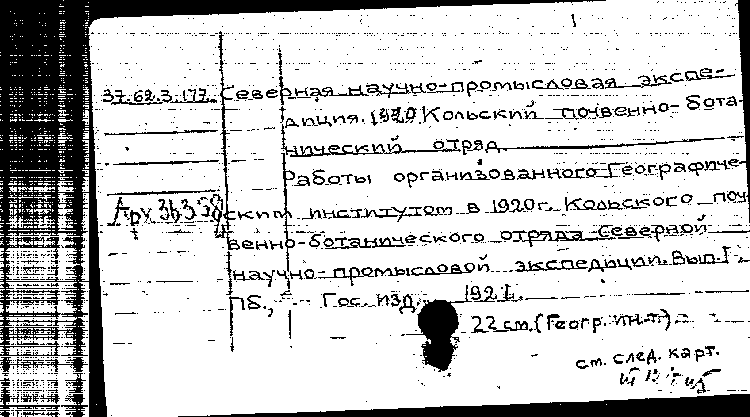 1
37.62.3.177. Северная научно-промысловая экспе-
диция. 1920. Кольский почвенно-бота-
нический отряд.
Работы организованного Географиче-
ским институтом в 1920г. Кольского поч-
венно-ботанического отряда Северной
научно-промысловой экспедиции. Вып. I.
Пб., Гос. изд. 1921.
22 см. (Геогр. ин-т).
см. след. карт.